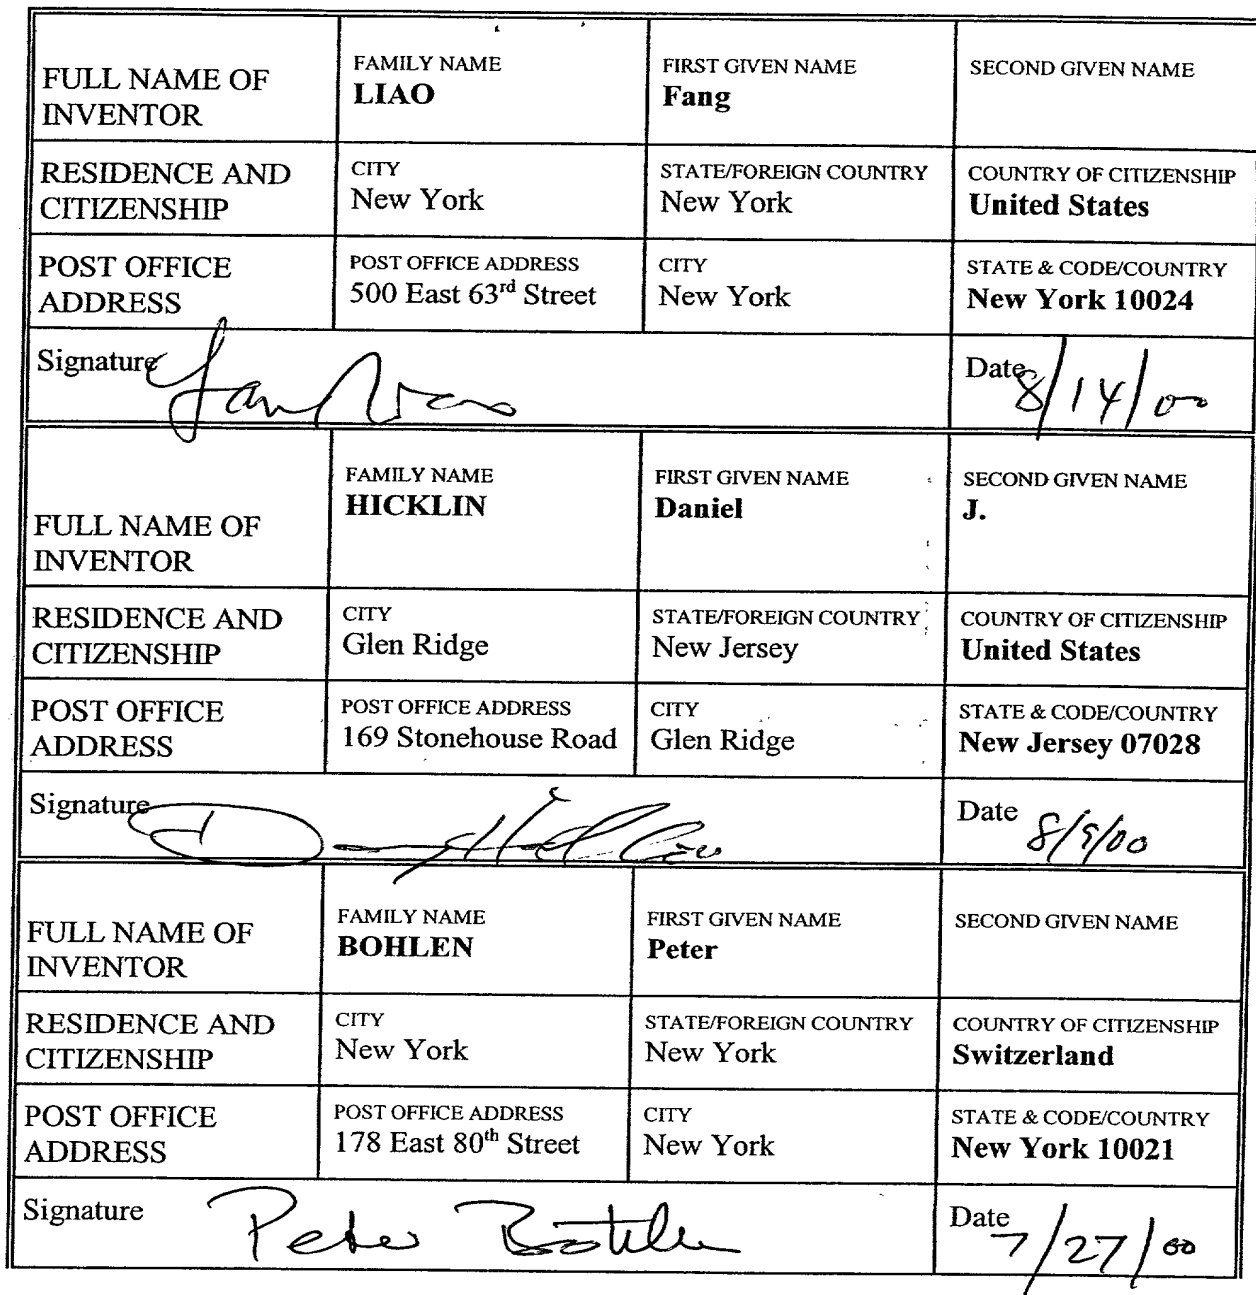 FULL NAME OF INVENTOR
FAMILY NAME
LIAO
FIRST GIVEN NAME
Fang
SECOND GIVEN NAME
RESIDENCE AND CITIZENSHIP
CITY
New York
STATE/FOREIGN COUNTRY
New York
COUNTRY OF CITIZENSHIP
United States
POST OFFICE ADDRESS
POST OFFICE ADDRESS
500 East 63rd Street
CITY
New York
STATE & CODE/COUNTRY
New York 10024
Signature
Date 8/14/00
FULL NAME OF INVENTOR
FAMILY NAME
HICKLIN
FIRST GIVEN NAME
Daniel
SECOND GIVEN NAME
J.
RESIDENCE AND CITIZENSHIP
CITY
Glen Ridge
STATE/FOREIGN COUNTRY
New Jersey
COUNTRY OF CITIZENSHIP
United States
POST OFFICE ADDRESS
POST OFFICE ADDRESS
169 Stonehouse Road
CITY
Glen Ridge
STATE & CODE/COUNTRY
New Jersey 07028
Signature
Date 8/9/00
FULL NAME OF INVENTOR
FAMILY NAME
BOHLEN
FIRST GIVEN NAME
Peter
SECOND GIVEN NAME
RESIDENCE AND CITIZENSHIP
CITY
New York
STATE/FOREIGN COUNTRY
New York
COUNTRY OF CITIZENSHIP
Switzerland
POST OFFICE ADDRESS
POST OFFICE ADDRESS
178 East 80th Street
CITY
New York
STATE & CODE/COUNTRY
New York 10021
Signature Peter Bohlen
Date 7/27/00